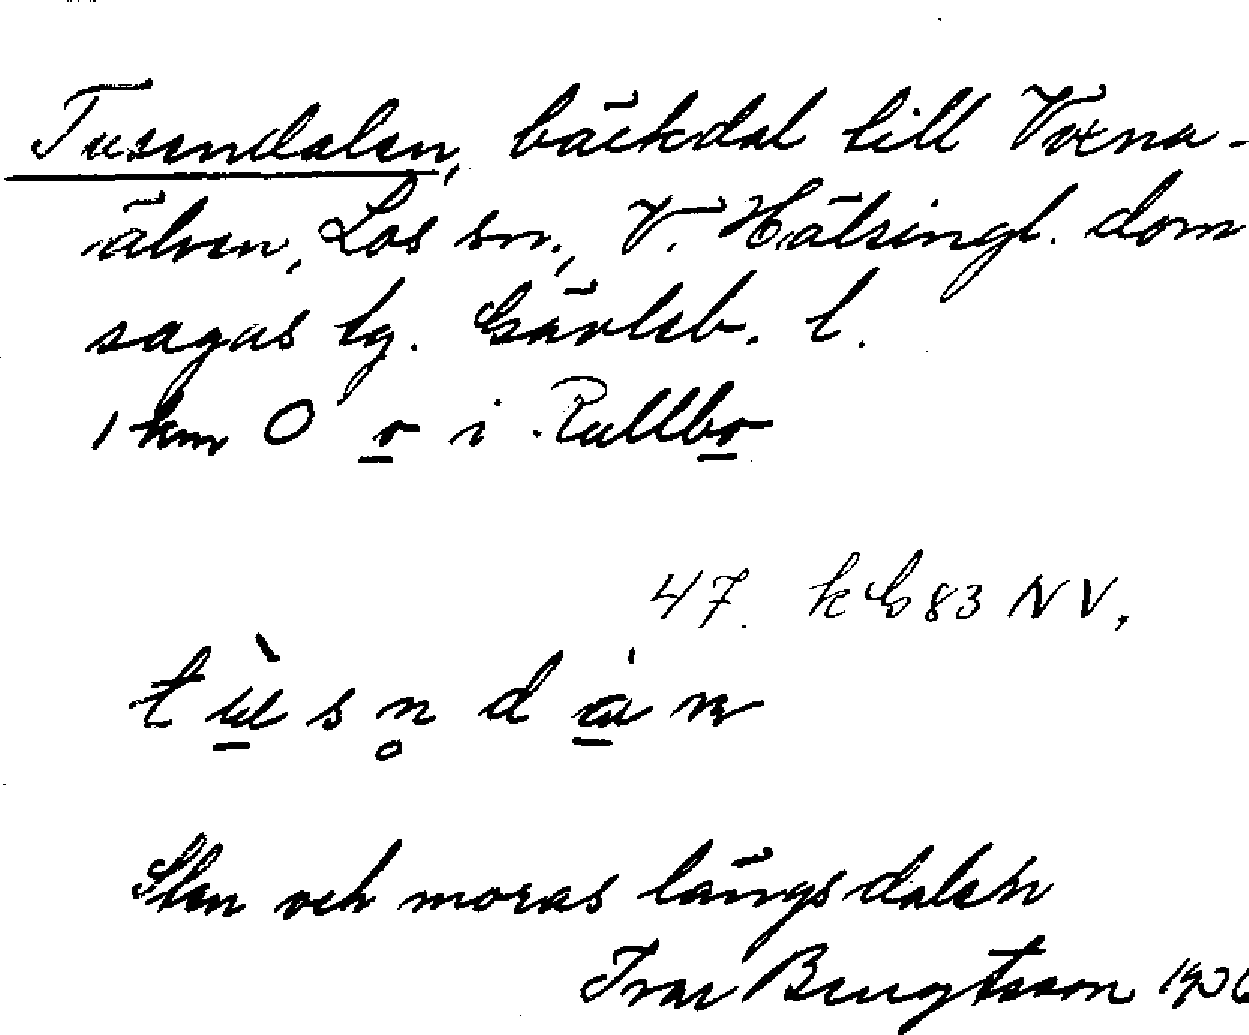 Tusendalen, bäckdal till Voxna-
älven, Los sn., V. Hälsingl. dom
sagas tg. Gävleb. l.
1 km O o i Rullbo
47. kb 83 NV.
tùsn̥dán
Sten och moras längs dalen
Ivar Bengtsson